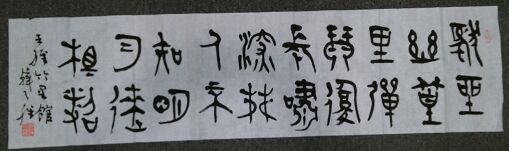 獨坐
幽篁
里彈
琴復
長嘯
深林
人不
知明
月來
相照
王維竹里館